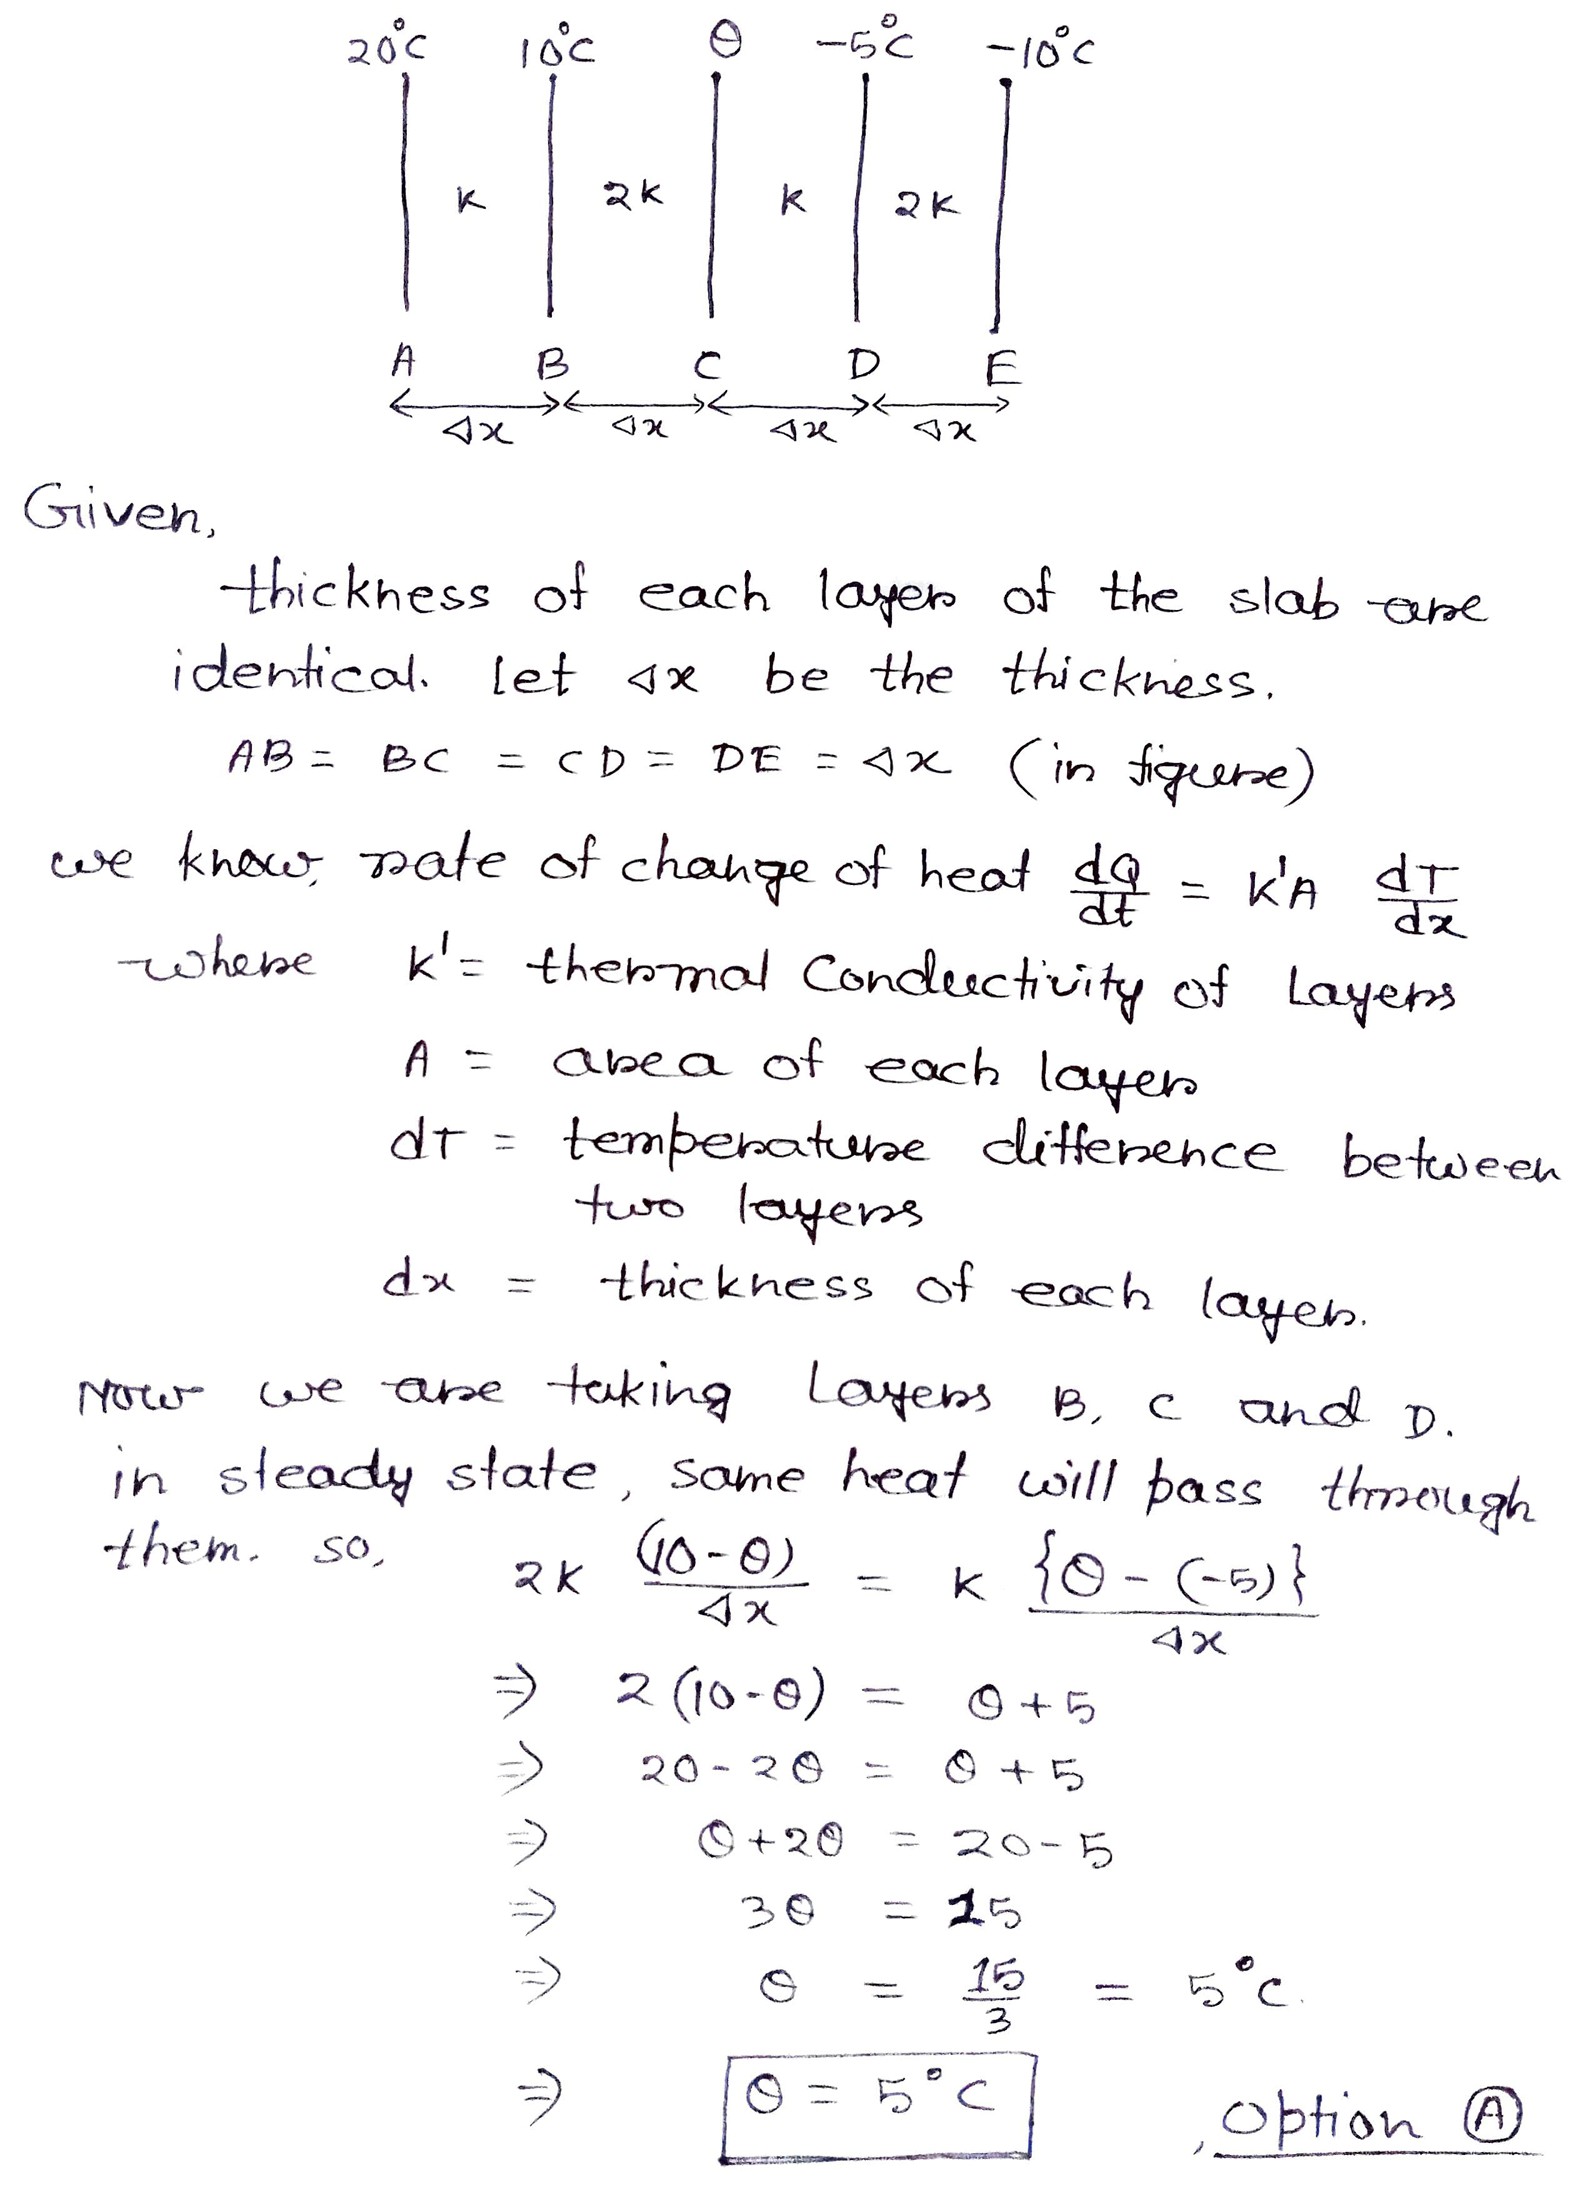 20°C 10°C θ -5°C -10°C
K 2K K 2K
A B C D E
Δx Δx Δx Δx
Given,
thickness of each layer of the slab are
identical. Let Δx be the thickness.
AB = BC = CD = DE = Δx (in figure)
we know, rate of change of heat dQ/dt = K'A dT/dx
where K' = thermal Conductivity of Layers
A = area of each layer
dT = temperature difference between
two layers
dx = thickness of each layer.
Now we are taking Layers B, C and D.
in steady state, same heat will pass through
them. so, 2K (10-θ)/Δx = K {θ-(-5)}/Δx
⇒ 2(10-θ) = θ+5
⇒ 20-2θ = θ+5
⇒ θ+2θ = 20-5
⇒ 3θ = 15
⇒ θ = 15/3 = 5°C.
⇒ θ = 5°C , option Ⓐ